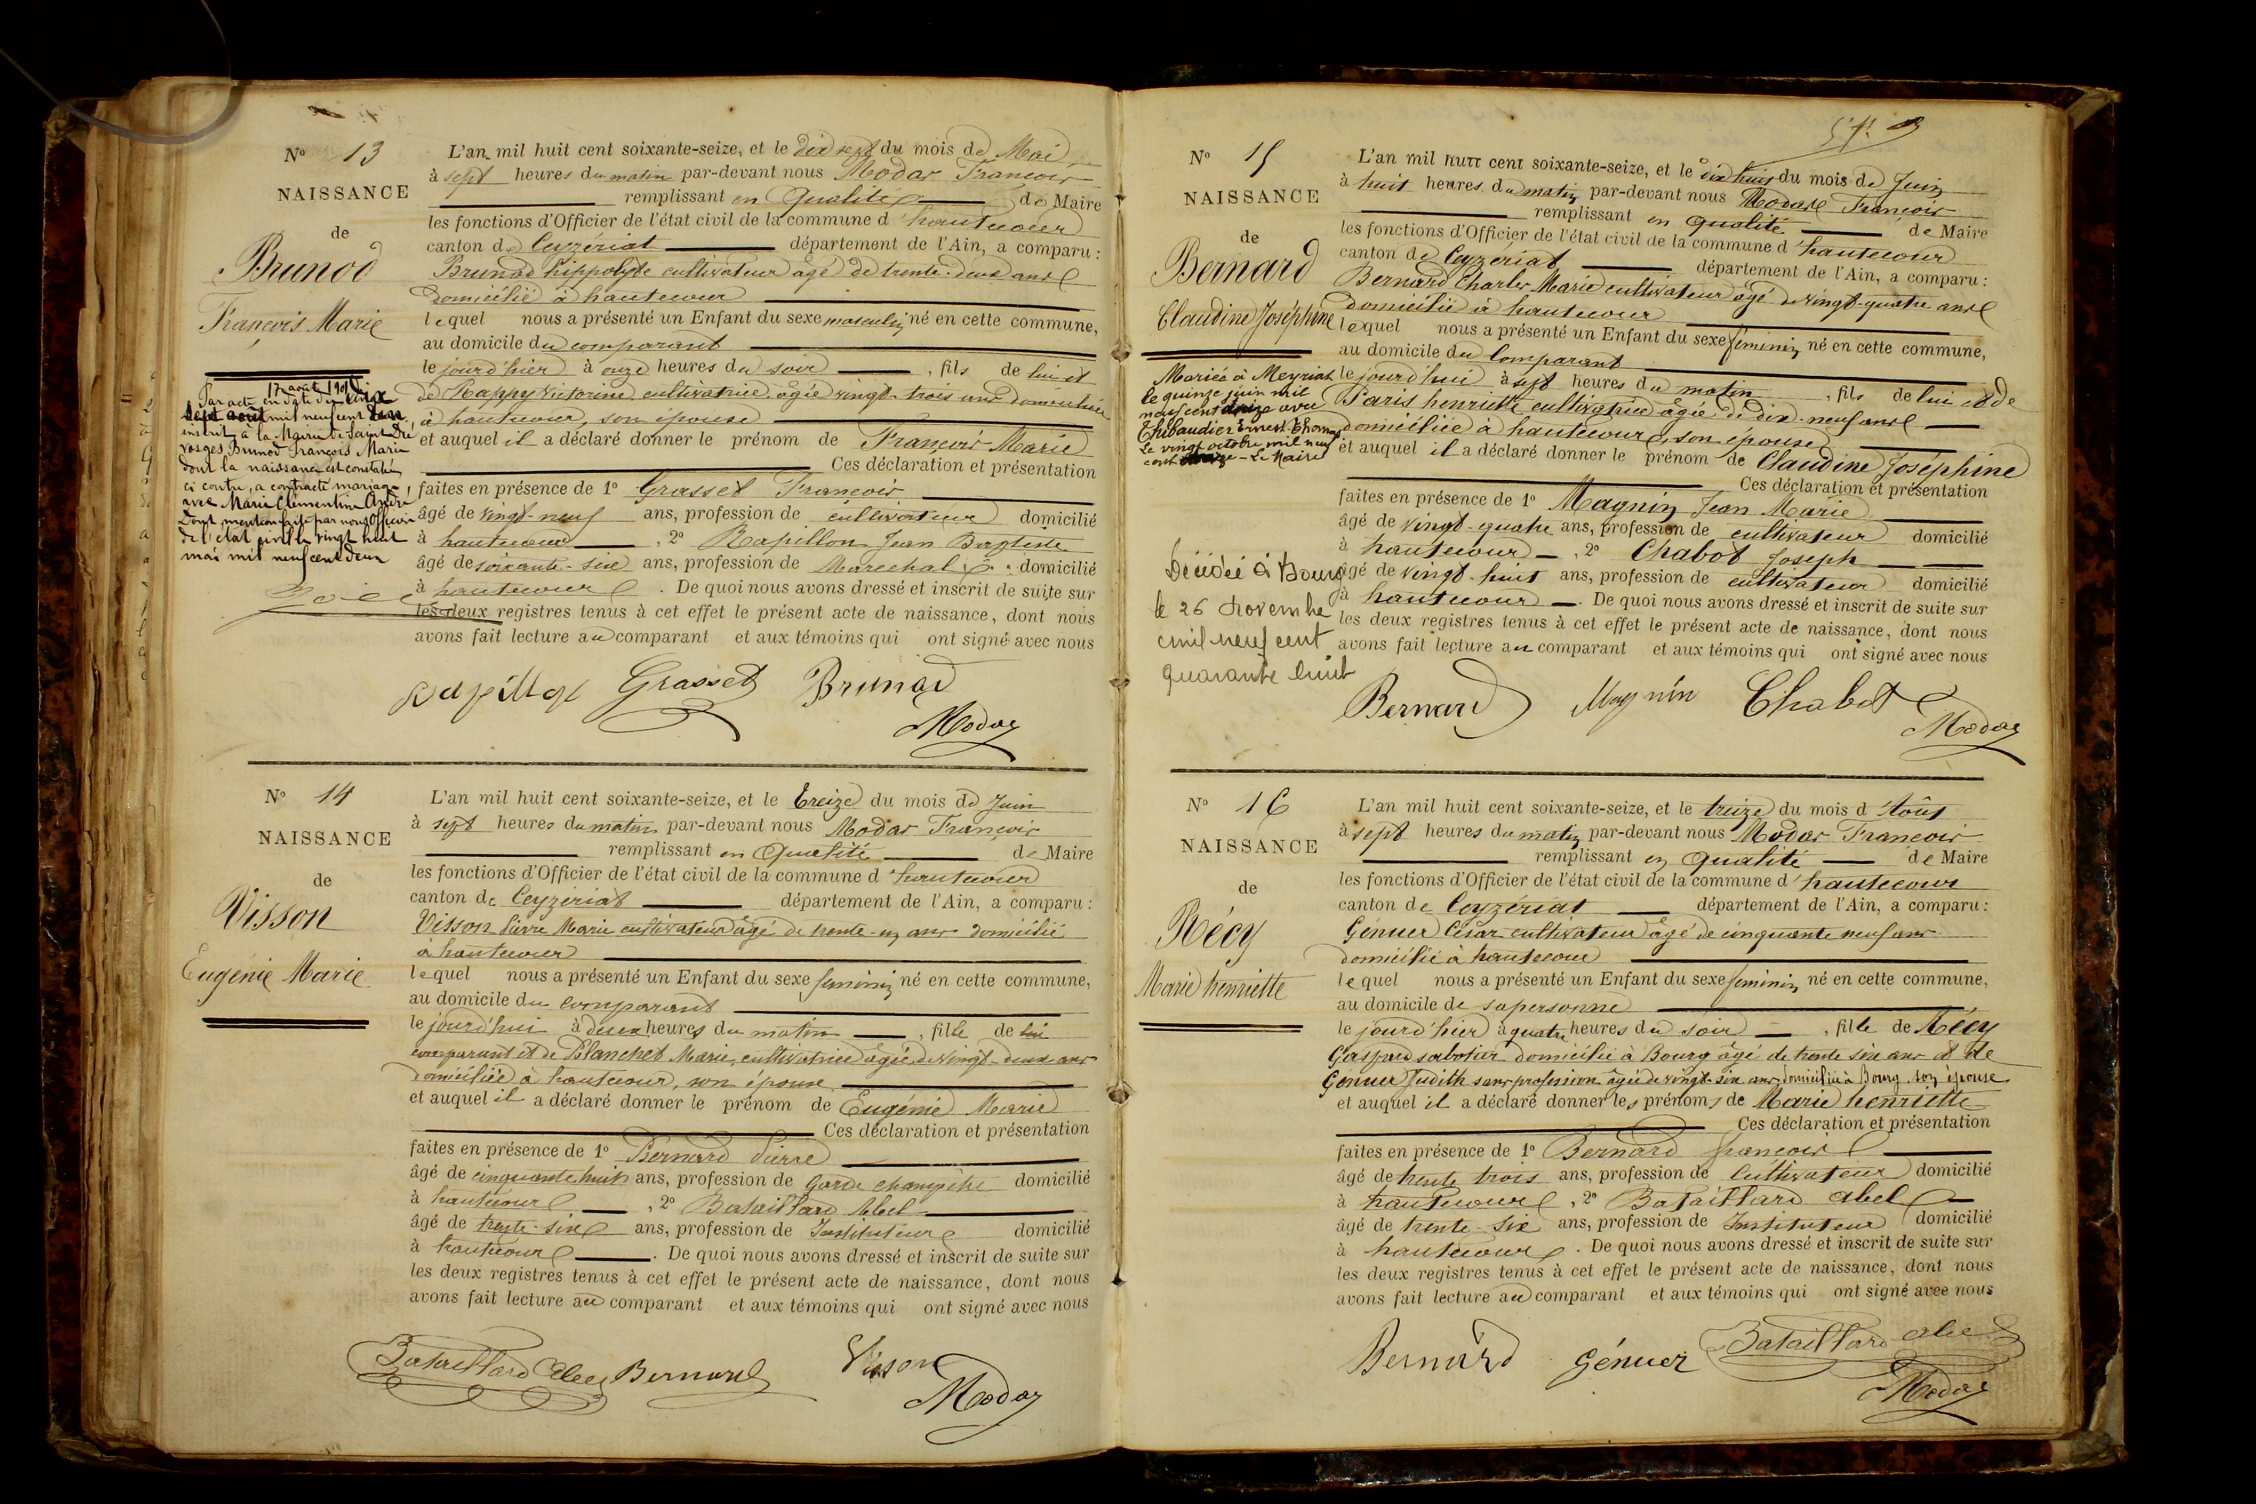 N° 13
NAISSANCE
de
Brunod
François Marie
17 août 1901
Par acte en date du
mil neuf cent
inscrit à la Mairie de Saint Dié,
Vosges Brunod François Marie
dont la naissance est constatée
ci contre, a contracté mariage,
avec Marie Clémentine André
Dont mention faite par nous Officier
de l'état civil le vingt huit
mai mil neuf cent deux
L'an mil huit cent soixante-seize, et le dix sept du mois de Mai
à sept heures du matin par-devant nous Modas François
remplissant en qualité de Maire
les fonctions d'Officier de l'état civil de la commune d'hautecour
canton de Ceyzériat département de l'Ain, a comparu :
Brunod hippolyte cultivateur âgé de trente-deux ans
domicilié à hautecour
lequel nous a présenté un Enfant du sexe masculin né en cette commune,
au domicile du comparant
le jourd'hier à onze heures du soir, fils de lui et
de Rappy Victorine cultivatrice âgée vingt-trois ans domiciliée
à hautecour, son épouse
et auquel il a déclaré donner le prénom de François Marie
Ces déclaration et présentation
faites en présence de 1° Grasset François
âgé de vingt-neuf ans, profession de cultivateur domicilié
à hautecour, 2° Rapillon Jean Baptiste
âgé de soixante-six ans, profession de Marechal domicilié
à hautecour. De quoi nous avons dressé et inscrit de suite sur
les deux registres tenus à cet effet le présent acte de naissance, dont nous
avons fait lecture au comparant et aux témoins qui ont signé avec nous
Rapillon Grasset Brunod
Modas
N° 14
NAISSANCE
de
Visson
Eugénie Marie
L'an mil huit cent soixante-seize, et le treize du mois de Juin
à sept heures du matin par-devant nous Modas François
remplissant en qualité de Maire
les fonctions d'Officier de l'état civil de la commune d'hautecour
canton de Ceyzériat département de l'Ain, a comparu :
Visson Pierre Marie cultivateur âgé de trente-un ans domicilié
à hautecour
lequel nous a présenté un Enfant du sexe feminin né en cette commune,
au domicile du comparant
le jourd'hui à deux heures du matin, fille de lui
comparant et de Planchet Marie, cultivatrice âgée de vingt-deux ans
domiciliée à hautecour, son épouse
et auquel il a déclaré donner le prénom de Eugénie Marie
Ces déclaration et présentation
faites en présence de 1° Bernard Pierre
âgé de cinquante huit ans, profession de Garde champêtre domicilié
à hautecour, 2° Bataillard Abel
âgé de trente-six ans, profession de Instituteur domicilié
à hautecour. De quoi nous avons dressé et inscrit de suite sur
les deux registres tenus à cet effet le présent acte de naissance, dont nous
avons fait lecture au comparant et aux témoins qui ont signé avec nous
Bataillard Abel Bernard Visson
Modas
N° 15
NAISSANCE
de
Bernard
Claudine Joséphine
Mariée à Meyriat
le quinze juin mil
neuf cent avec
Thibaudier Ernest Thomas
Le vingt octobre mil neuf
cent - Le Maire
Décédée à Bourg
le 26 novembre
mil neuf cent
quarante huit
L'an mil huit cent soixante-seize, et le dix huit du mois de Juin
à huit heures du matin par-devant nous Modas François
remplissant en qualité de Maire
les fonctions d'Officier de l'état civil de la commune d'hautecour
canton de Ceyzériat département de l'Ain, a comparu :
Bernard Charles Marie cultivateur âgé de vingt-quatre ans
domicilié à hautecour
lequel nous a présenté un Enfant du sexe féminin né en cette commune,
au domicile du comparant
le jourd'hui à sept heures du matin, fils de lui et de
Paris henriette cultivatrice âgée de dix-neuf ans
domiciliée à hautecour, son épouse
et auquel il a déclaré donner le prénom de Claudine Joséphine
Ces déclaration et présentation
faites en présence de 1° Magnin Jean Marie
âgé de vingt-quatre ans, profession de cultivateur domicilié
à hautecour, 2° Chabot Joseph
âgé de vingt-huit ans, profession de cultivateur domicilié
à hautecour. De quoi nous avons dressé et inscrit de suite sur
les deux registres tenus à cet effet le présent acte de naissance, dont nous
avons fait lecture au comparant et aux témoins qui ont signé avec nous
Bernard Magnin Chabot
Modas
N° 16
NAISSANCE
de
Récy
Marie henriette
L'an mil huit cent soixante-seize, et le treize du mois d'Août
à sept heures du matin par-devant nous Modas François
remplissant en qualité de Maire
les fonctions d'Officier de l'état civil de la commune d'hautecour
canton de Ceyzériat département de l'Ain, a comparu :
Génuer César cultivateur âgé de cinquante neuf ans
domicilié à hautecour
lequel nous a présenté un Enfant du sexe feminin né en cette commune,
au domicile de sa personne
le jourd'hier à quatre heures du soir, fille de Récy
Gaspard sabotier domicilié à Bourg âgé de trente six ans et de
Génuer Judith sans profession âgée de vingt-six ans domiciliée à Bourg son épouse
et auquel il a déclaré donner les prénoms de Marie henriette
Ces déclaration et présentation
faites en présence de 1° Bernard françois
âgé de trente trois ans, profession de Cultivateur domicilié
à hautecour, 2° Bataillard Abel
âgé de trente-six ans, profession de Instituteur domicilié
à hautecour. De quoi nous avons dressé et inscrit de suite sur
les deux registres tenus à cet effet le présent acte de naissance, dont nous
avons fait lecture au comparant et aux témoins qui ont signé avec nous
Bernard Génuer Bataillard Abel
Modas